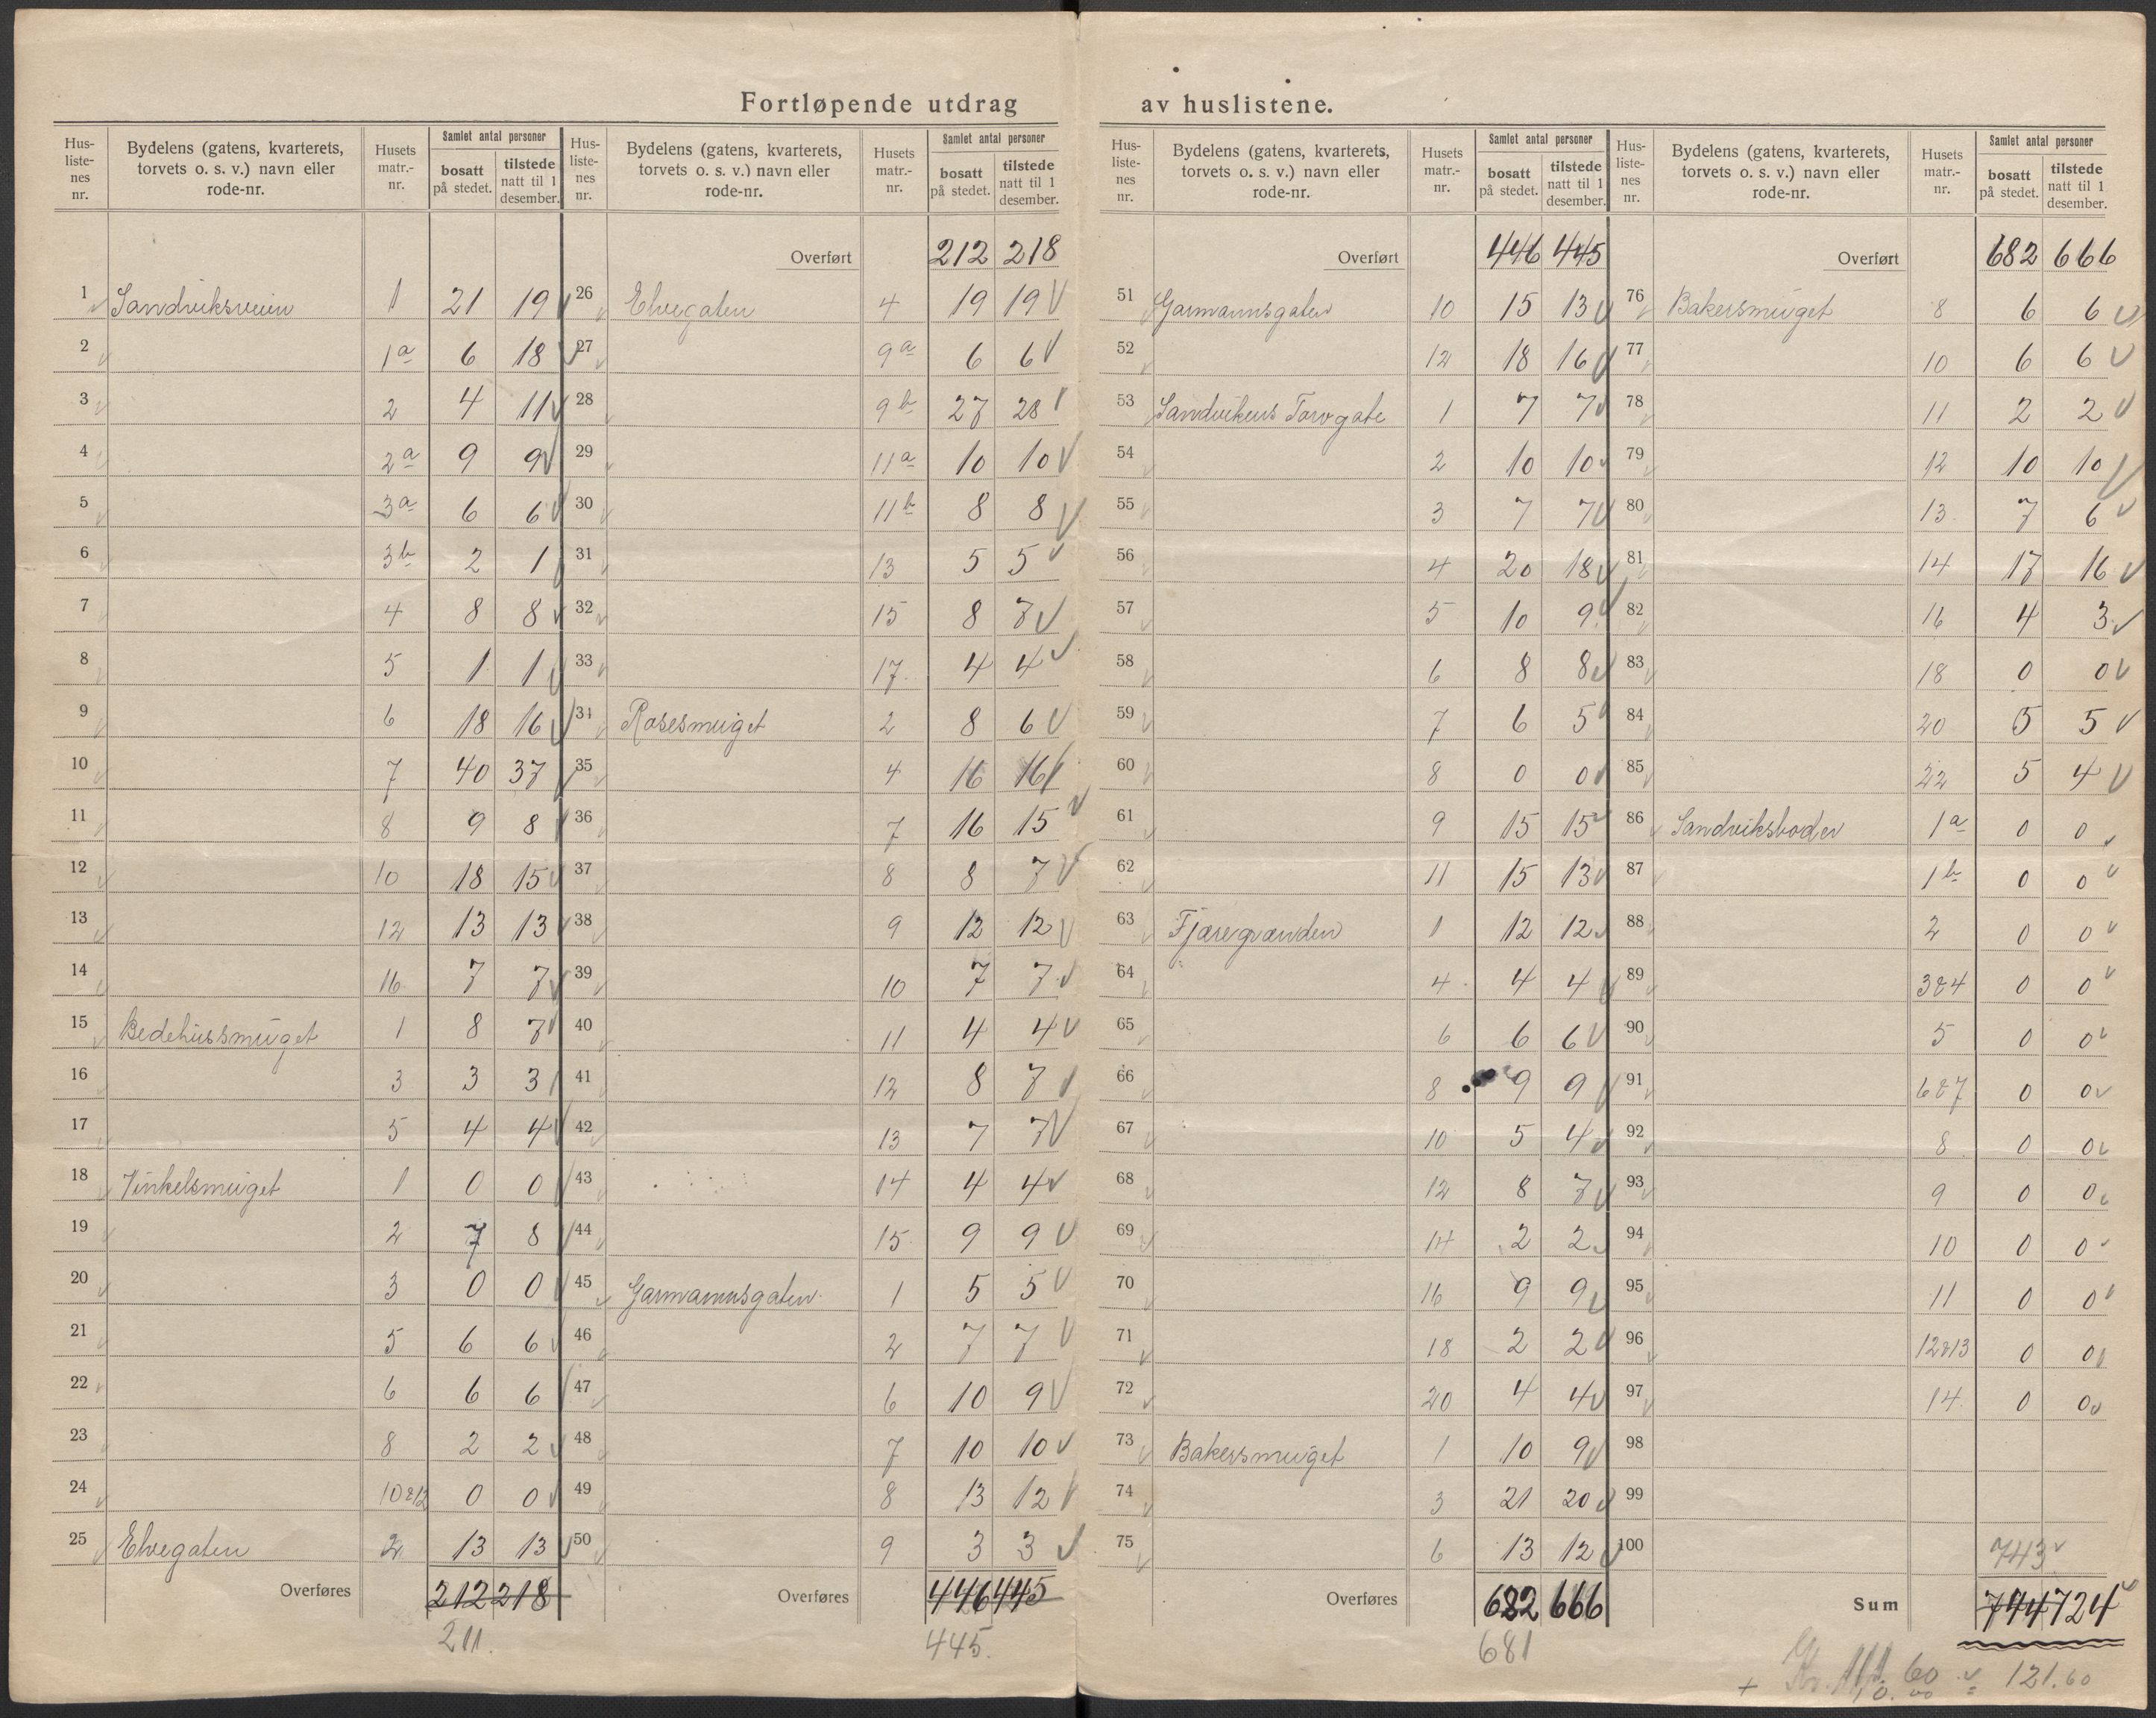 Fortløpende utdrag av huslistene.
Hus-listenes nr. | Bydelens (gatens, kvarterets, torvets o. s. v.) navn eller rode-nr. | Husets matr.-nr. | Samlet antal personer | bosatt på stedet. | tilstede natt til 1 desember.
1 Sandviksveien 1 21 19
2 1a 6 18
3 2 4 11
4 2a 9 9
5 3a 6 6
6 3b 2 1
7 4 8 8
8 5 1 1
9 6 18 16
10 7 40 37
11 8 9 8
12 10 18 15
13 12 13 13
14 16 7 7
15 Bedehussmuget 1 8 7
16 3 3 3
17 5 4 4
18 Vinkelsmuget 1 0 0
19 2 7 8
20 3 0 0
21 5 6 6
22 6 6 6
23 8 2 2
24 10&12 0 0
25 Elvegaten 2 13 13
Overføres 212 218
211.
Hus-listenes nr. | Bydelens (gatens, kvarterets, torvets o. s. v.) navn eller rode-nr. | Husets matr.-nr. | Samlet antal personer | bosatt på stedet. | tilstede natt til 1 desember.
Overført 212 218
26 Elvegaten 4 19 19
27 9a 6 6
28 9b 27 28
29 11a 10 10
30 11b 8 8
31 13 5 5
32 15 8 7
33 17 4 4
34 Rosesmuget 2 8 6
35 4 16 16
36 7 16 15
37 8 8 7
38 9 12 12
39 10 7 7
40 11 4 4
41 12 8 7
42 13 7 7
43 14 4 4
44 15 9 9
45 Garmannsgaten 1 5 5
46 2 7 7
47 6 10 9
48 7 10 10
49 8 13 12
50 9 3 3
Overføres 446 445
445.
Hus-listenes nr. | Bydelens (gatens, kvarterets, torvets o. s. v.) navn eller rode-nr. | Husets matr.-nr. | Samlet antal personer | bosatt på stedet. | tilstede natt til 1 desember.
Overført 446 445
51 Garmannsgaten 10 15 13
52 12 18 16
53 Sandvikens Torvgate 1 7 7
54 2 10 10
55 3 7 7
56 4 20 18
57 5 10 9
58 6 8 8
59 7 6 5
60 8 0 0
61 9 15 15
62 11 15 13
63 Fjæregrænden 1 12 12
64 4 4 4
65 6 6 6
66 8 9 9
67 10 5 4
68 12 8 7
69 14 2 2
70 16 9 9
71 18 2 2
72 20 4 4
73 Bakersmuget 1 10 9
74 3 21 20
75 6 13 12
Overføres 682 666
681
Hus-listenes nr. | Bydelens (gatens, kvarterets, torvets o. s. v.) navn eller rode-nr. | Husets matr.-nr. | Samlet antal personer | bosatt på stedet. | tilstede natt til 1 desember.
Overført 682 666
76 Bakersmuget 8 6 6
77 10 6 6
78 11 2 2
79 12 10 10
80 13 7 6
81 14 17 16
82 16 4 3
83 18 0 0
84 20 5 5
85 22 5 4
86 Sandviksboder 1a 0 0
87 1b 0 0
88 2 0 0
89 3&4 0 0
90 5 0 0
91 6&7 0 0
92 8 0 0
93 9 0 0
94 10 0 0
95 11 0 0
96 12&13 0 0
97 14 0 0
98
99
100
743
Sum 744 724
+ 10.00 = 121.60